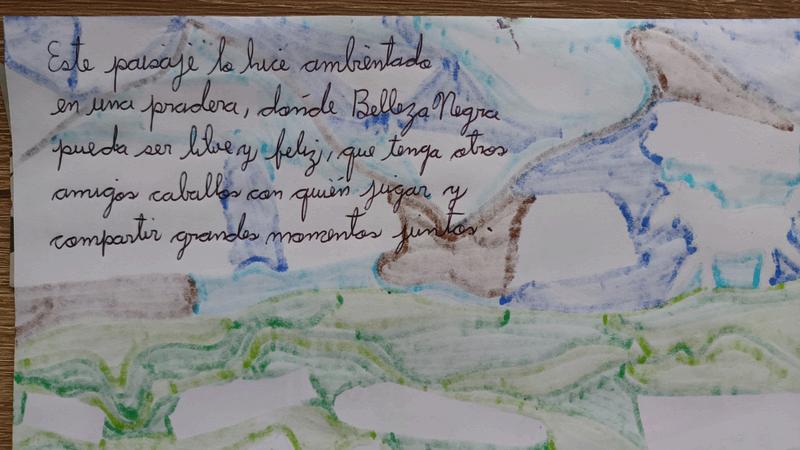 Este paisaje lo hice ambientado
en una pradera, donde Belleza Negra
pueda ser libre y feliz, que tenga otros
amigos caballos con quién jugar y
compartir grandes momentos juntos.